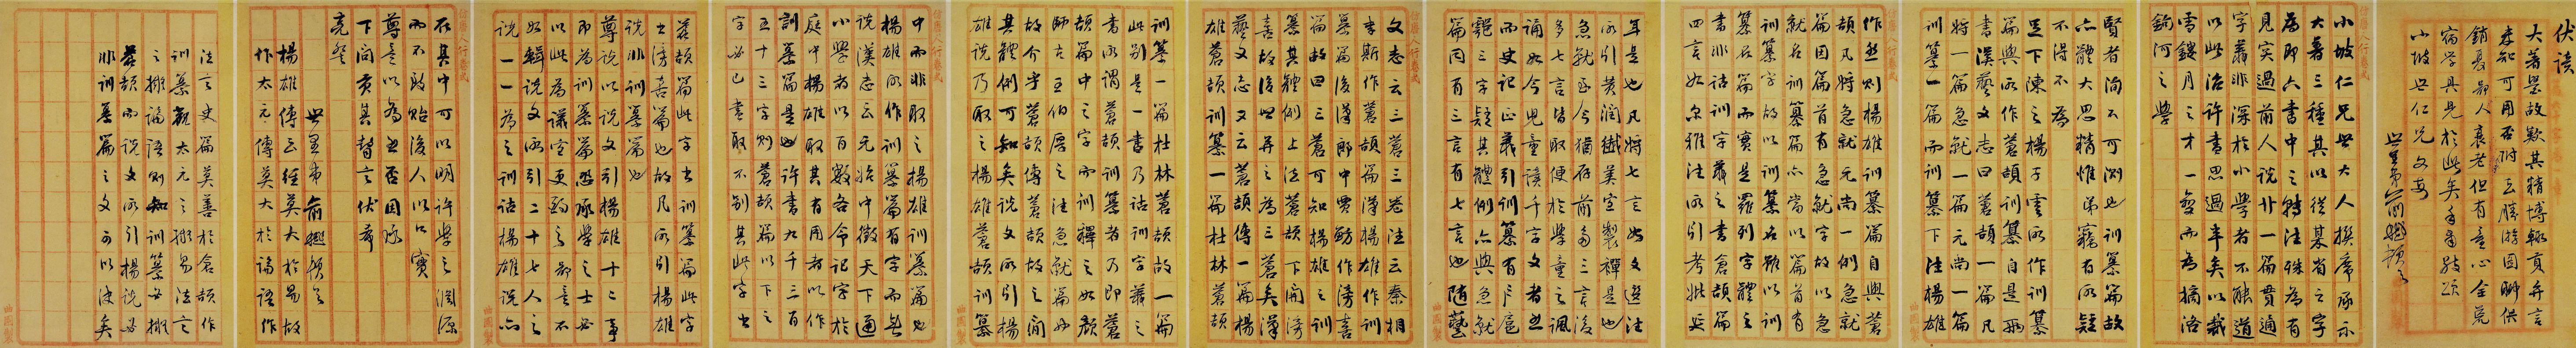 伏讀
大著畢故歎其精博輒貢弁言
未知可用否附呈勝游圖聊供
銷夏鄙人衰老但有童心全荒
宿學具見於此矣手肅敬頌
小坡世仁兄文安
世愚弟俞樾頓首
小坡仁兄世大人撰席承示
大著三種其以從某省之字
為即六書中之轉注殊為有
見實過前人說廿一篇貫通
字義非深於小學者不能道
以此治許書思過半矣以裁
雲鏤月之才一變而為摘洛
鉤河之學
賢者洵不可測也訓纂篇故
六體大思精惟弟竊有所疑
不得不為
足下陳之楊子雲所作訓纂
篇與所作蒼頡訓纂自是兩
書漢藝文志曰蒼頡一篇凡
將一篇急就一篇元尚一篇
訓纂一篇而訓纂下注楊雄
作然則楊雄訓纂篇自與蒼
頡凡將急就元尚一例急就
篇因篇首有急就字故以急
就名訓纂篇亦當以篇首有
訓纂字故以訓纂名雖以訓
纂名篇而實是羅列字體之
書非詁訓字義之書倉頡篇
四言如爾雅注所引考妣延
年是也凡將七言如文選注
所引黄潤纖美宜製襌是也
急就至今猶存前多三言後
多七言皆取便於學童之諷
誦如今兒童讀千字文者然
而史記正義引訓纂有戶扈
鄠三字疑其體例亦與急就
篇同有三言有七言也隨藝
文志云三蒼三卷注云秦相
李斯作蒼頡篇漢楊雄作訓
纂篇後漢郎中賈魴作滂喜
篇故曰三蒼可知楊雄之訓
纂其體例上法蒼頡下開滂
喜故後世并之為三蒼矣漢
藝文志又云蒼頡傳一篇楊
雄蒼頡訓纂一篇杜林蒼頡
訓纂一篇杜林蒼頡故一篇
此別是一書乃詁訓字義之
書所謂蒼頡訓纂者乃即蒼
頡篇中之字而訓釋之如顏
師古王伯厚之注急就篇
故介乎蒼頡傳蒼頡故之間
其體例可知矣說文所引楊
雄說乃取之楊雄蒼頡訓纂
中而非取之楊雄訓纂篇也
楊雄所作訓纂篇有字而無
說漢志云元始中徵天下通
小學者以百數各令記字於
庭中楊雄取其有用者以作
訓纂篇是也許書九千三百
五十三字則蒼頡篇以下之
字必已書取不別其此字出
蒼頡篇此字出訓纂篇此字
出滂喜篇也故凡所引楊雄
說非訓纂篇也
尊說以說文引楊雄十二事
即為訓纂篇恐承學之士或
以此為議宜更酌之鄙意不
如輯說文所引二十七人之
說一一為之訓詁楊雄說亦
在其中可以明許學之淵源
而不致貽後人以口實
尊意以為然否因承
下問貢其瞽言伏希
亮詧
世愚弟俞樾頓首
楊雄傳云經莫大於易故
作太元傳莫大於論語作
法言史篇莫善於倉頡作
訓纂觀太元之擬易法言
之擬論語則知訓纂必擬
蒼頡而說文所引楊說必
非訓纂篇之文可以決矣